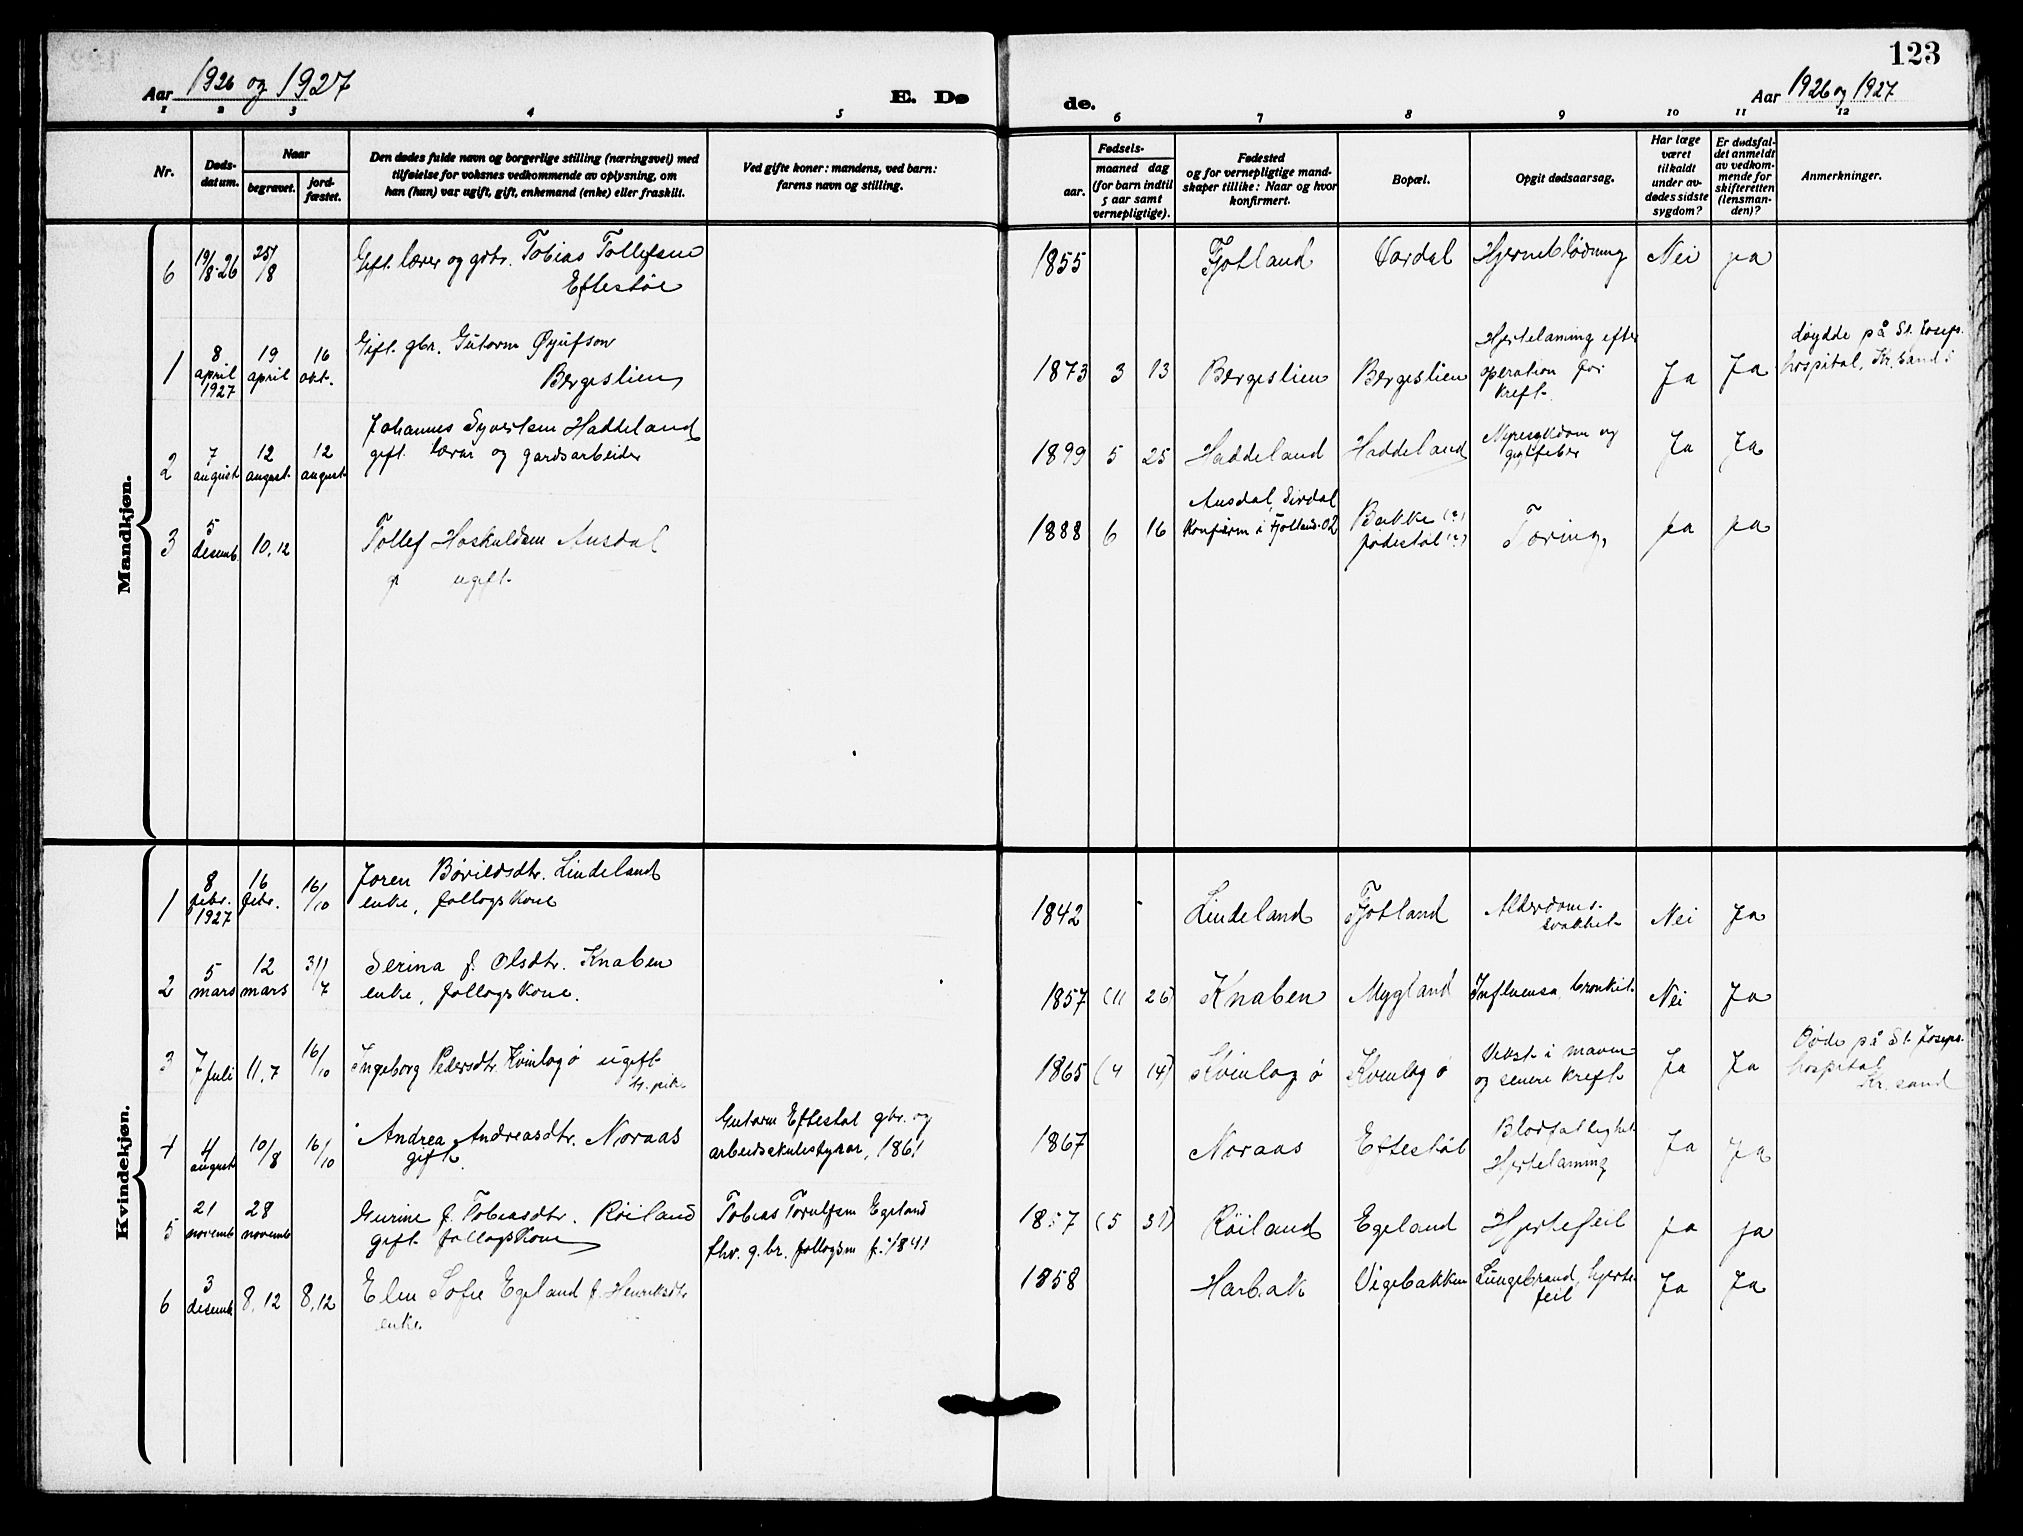 123
Aar 1926 og 1927
E. Dø
de.
Aar 1926 og 1927
1 2 3 4 5 6 7 8 9 10 11 12
Nr.
Døds-
datum.
Naar
begravet.
jord-
fæstet.
Den dødes fulde navn og borgerlige stilling (næringsvei) med
tilføielse for voksnes vedkommende av oplysning, om
han (hun) var ugift, gift, enkemand (enke) eller fraskilt.
Ved gifte koner: mandens, ved barn:
farens navn og stilling.
Fødsels-
aar.
maaned dag
(for barn indtil
5 aar samt
vernepligtige).
Fødested
og for vernepligtige mand-
skaper tillike: Naar og hvor
konfirmert.
Bopæl.
Opgit dødsaarsag.
Har læge
været
tilkaldt
under av-
dødes sidste
sygdom?
Er dødsfal-
det anmeldt
av vedkom-
mende for
skifteretten
(lensman-
den)?
Anmerkninger.
Mandkjøn.
6 19/8-26 25/8 Gift. lærer og gbr. Tobias Tollefsen
Eftestøl
1855 Fjotland Vordal Hjerneblødning Nei ja
1 8 april 1927 19 april 16 okt. Gift. gbr. Gutorm Øyufson
Bergeslien
1873 3 13 Bergeslien Bergeslien Hjertelaming efter
operation for
kreft. Ja Ja døydde på St. Joseps.
hospital, Kr.sand S
2 7 august 12 august 12 august Johannes Syvertsen Haddeland
gift. lærar og gardsarbeider
1899 5 25 Haddeland Haddeland Nyresykdom og
gigtfeber Ja Ja
3 5 desemb. 10.12 Tollef Hoskuldsen Ausdal
ugift.
1888 6 16 Ausdal, Sirdal
Konfirm i Fjotland. 02 Bakke (?)
Tæring, ja ja
Kvindekjøn.
1 8 febr. 1927 16 febr. 16/10 Joren Bøvildsdtr. Lindeland
enke, follogskone
1842 - Lindeland Fjotland Alderdoms.
svakhet Nei Ja
2 5 mars 12 mars 31/7 Serina f. Olsdtr. Knaben
enke, follogskone.
1857 (11 26) Knaben Mygland Influensa, bronkit. Nei Ja
3 7 juli 11.7 16/10 Ingeborg Pedersdtr. Kvinlog ø ugift
1865 (4 14) Kvinlog ø Kvinlog ø Vekst i maven
og senere kreft. Ja Ja Døde på St. Joseps.
hospital
Kr.sand
4 4 august 10/8 16/10 Andrea Andreasdtr. Noraas
gift.
Gutorm Eftestøl gbr. og
arbeidsskulestyrar, 1861
1867 Noraas Eftestøl Blodfattighet
Hjertelaming Ja Ja
5 21 novemb 28 novemb Gurine f. Tobiasdtr. Røiland
gift. follogskone
Tobias Torulfsen Egeland
fhv. g.br. follogsm f. 1841
1857 (5 31) Røiland Egeland Hjertefeil ja ja
6 3 desemb 8.12 8.12 Elen Sofie Egeland f. Henriksdtr
enke
1858 Harbak Vigebakken Lungebrand, hjerte
feil Ja Ja